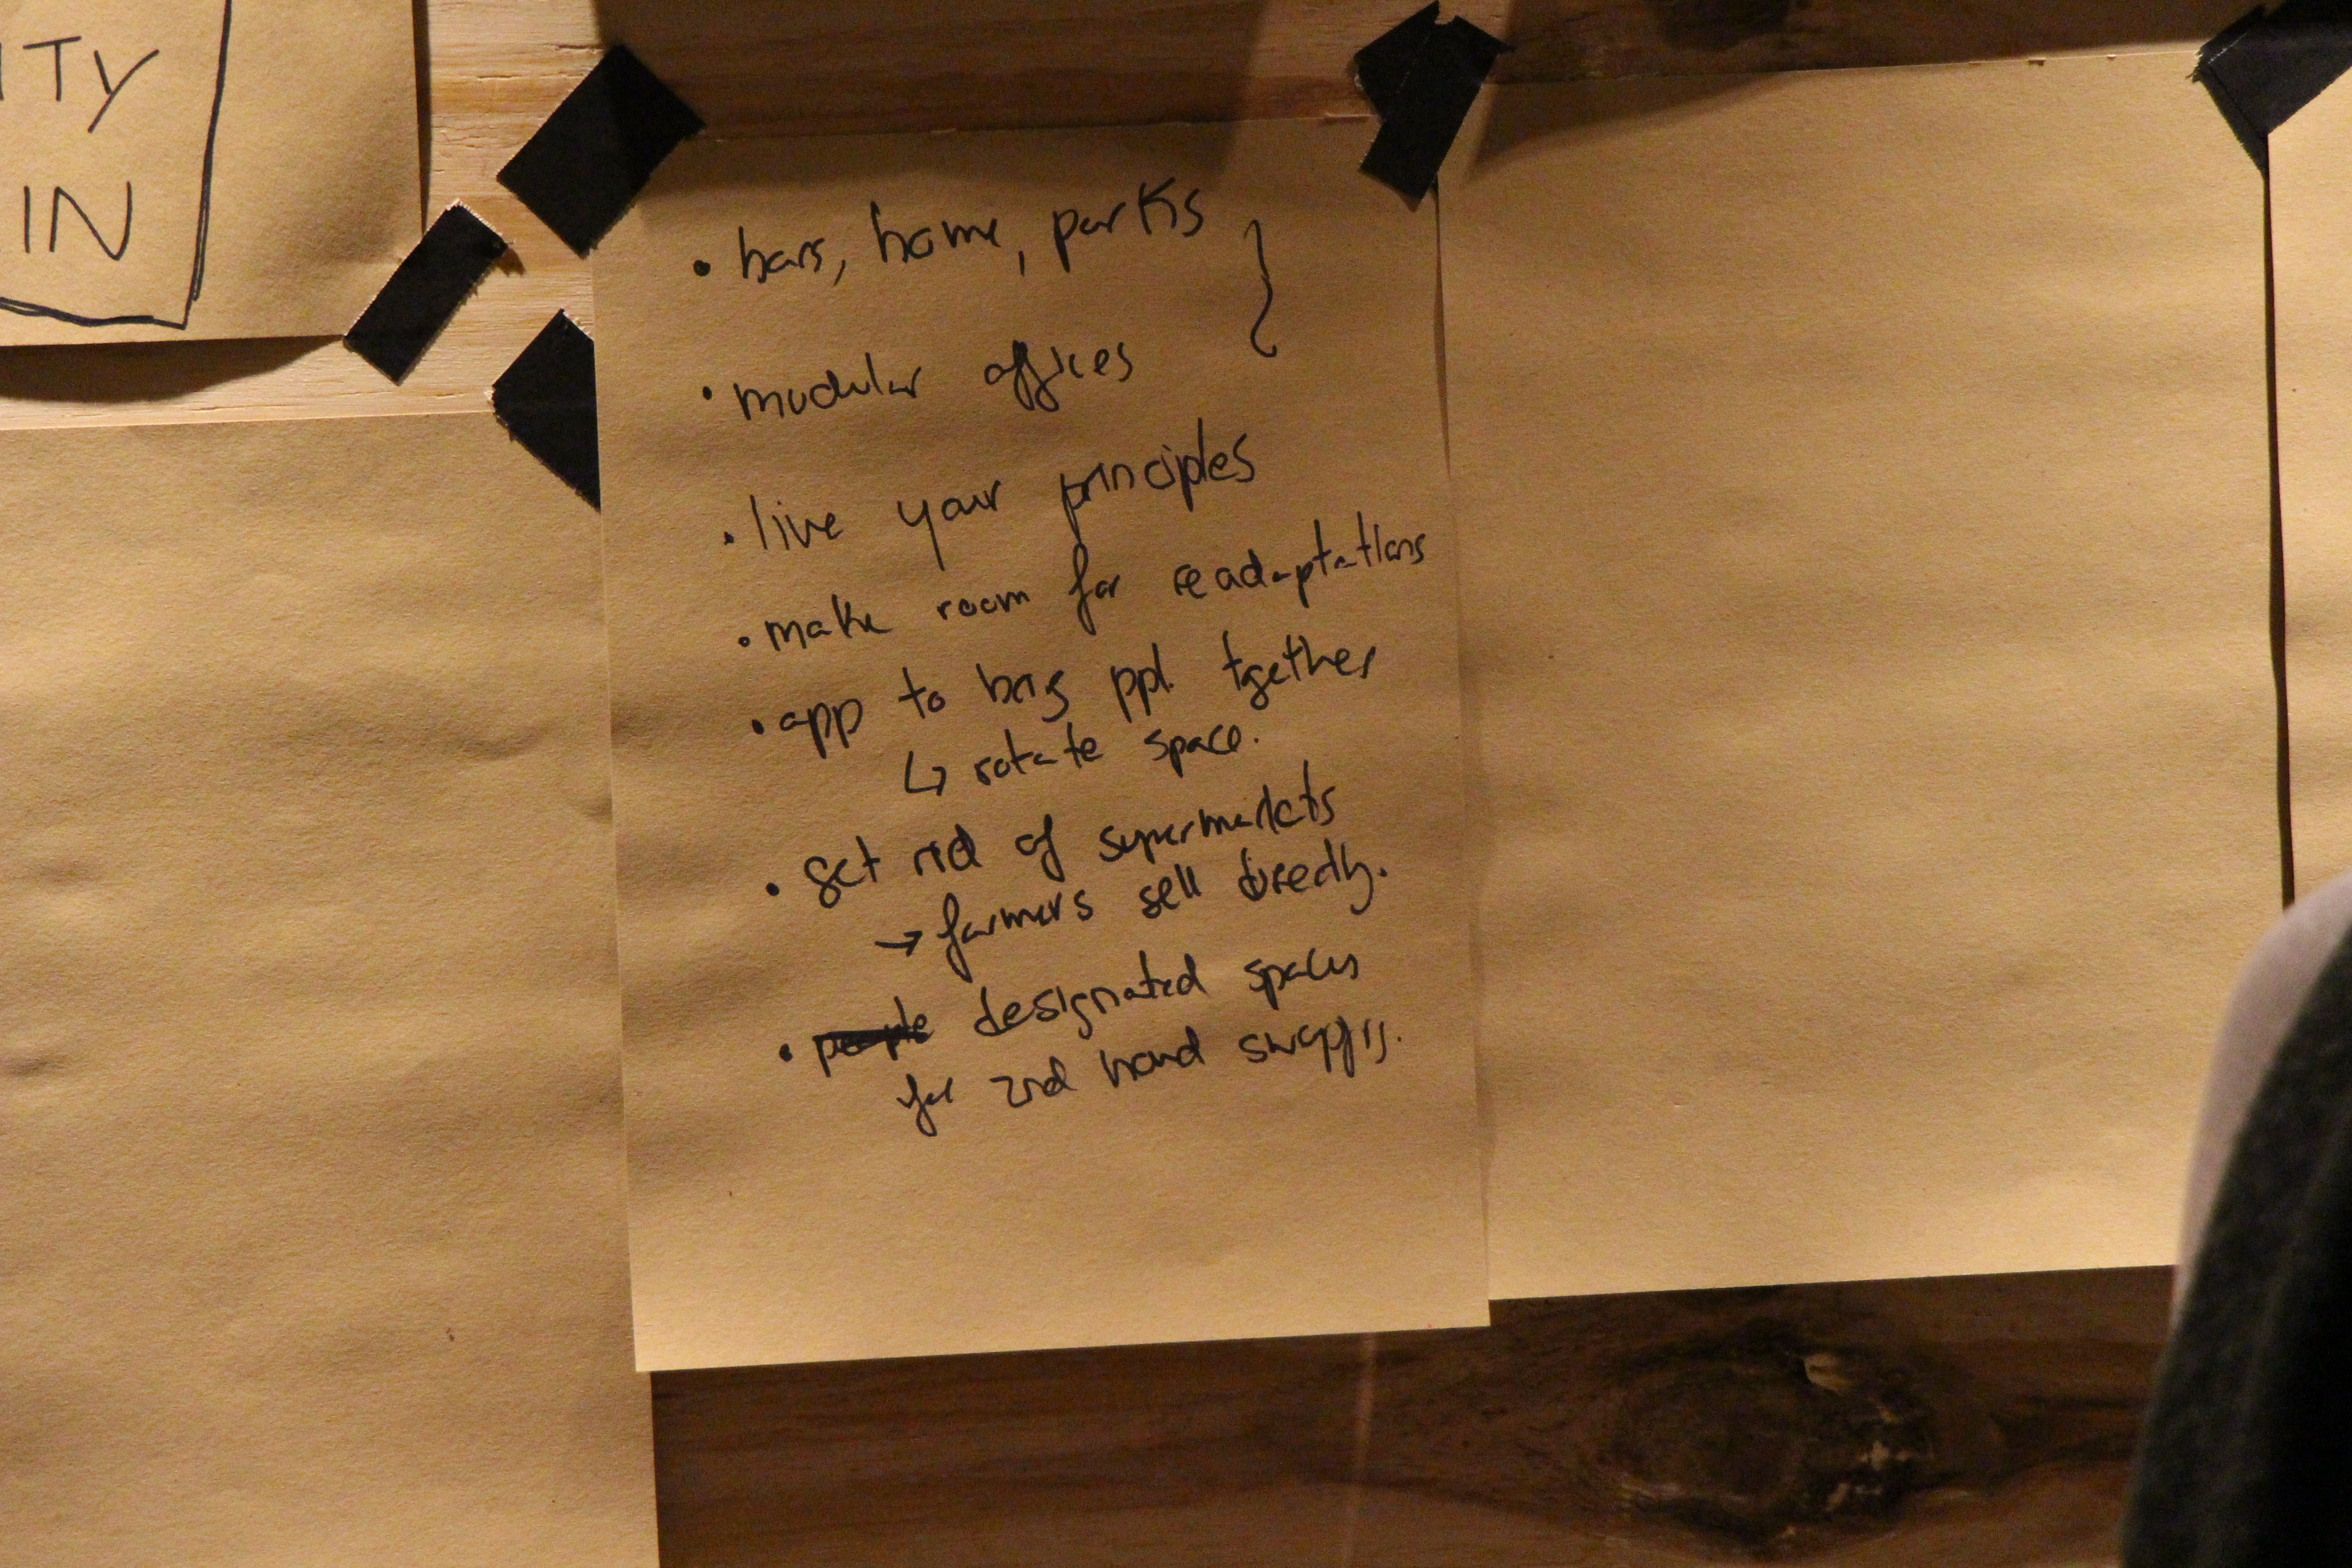 ITY
IN
• bars, home, parks
• modular offices
• live your principles
• make room for readaptations
• app to bring ppl. tgether
↳ rotate space.
• get rid of supermarkets
→ farmers sell directly.
• people designated spaces
for 2nd hand swapping.